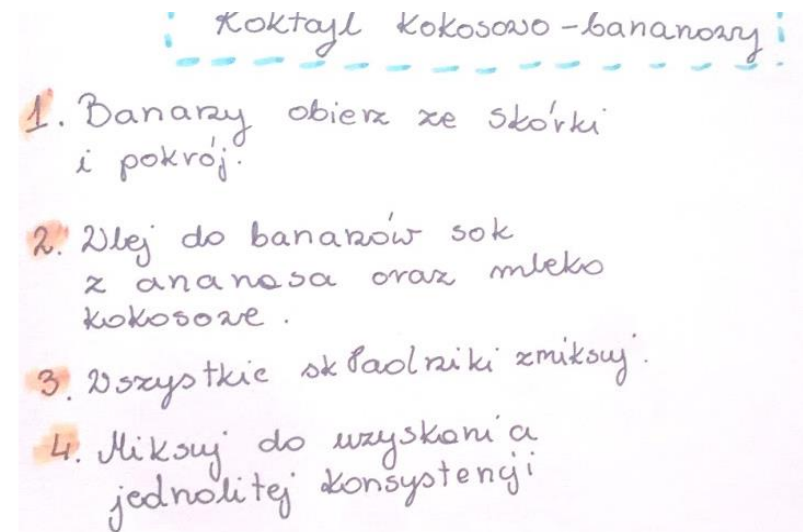 Koktajl kokosowo-bananowy
1. Banany obierz ze skórki
i pokrój.
2. Wlej do bananów sok
z ananasa oraz mleko
kokosowe.
3. Wszystkie składniki zmiksuj.
4. Miksuj do uzyskania
jednolitej konsystencji